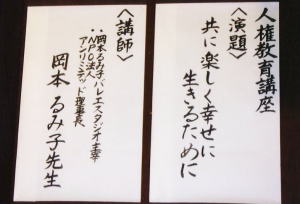 人権教育講座
〈演題〉
共に楽しく幸せに
生きるために
〈講師〉
岡本るみ子バレエスタジオ主宰
NPO法人
アンリミテッド理事長
岡本るみ子先生